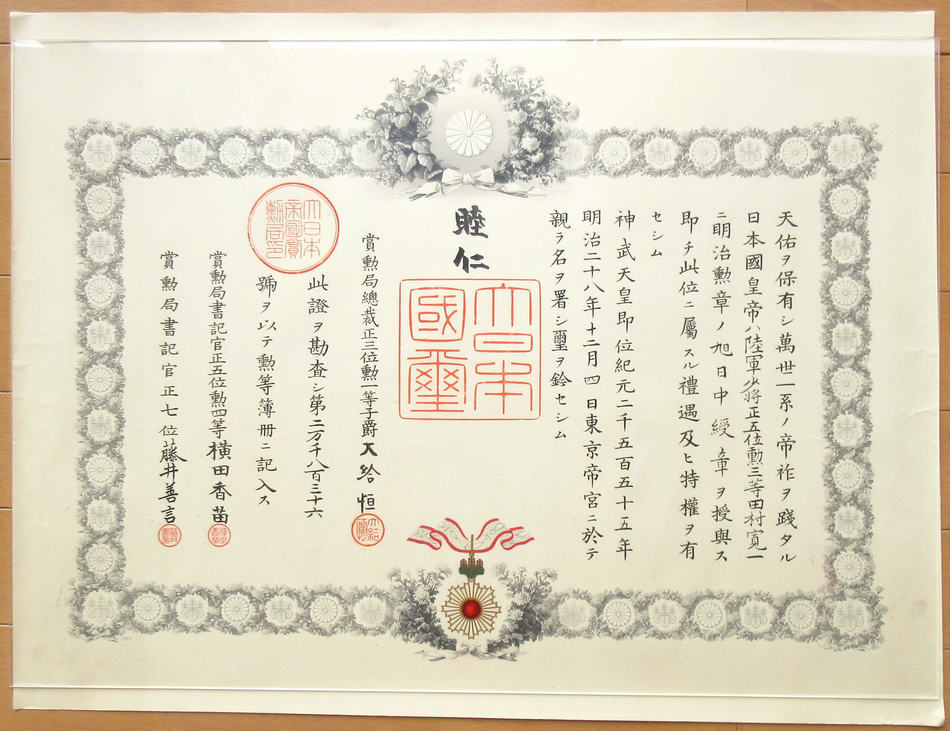 天佑ヲ保有シ萬世一系ノ帝祚ヲ踐タル
日本國皇帝ハ陸軍少將正五位勲三等田村寛一
ニ明治勲章ノ旭日中綬章ヲ授與ス
即チ此位ニ屬スル禮遇及ヒ特權ヲ有
セシム
神武天皇即位紀元二千五百五十五年
明治二十八年十二月四日東京帝宮ニ於テ
親ラ名ヲ署シ璽ヲ鈐セシム
睦仁
大日本
國璽
賞勲局總裁正三位勲一等子爵大給恒
大給恒
此證ヲ勘査シ第二万千八百三十六
號ヲ以テ勲等簿冊ニ記入ス
大日本
帝國賞
勲局印
賞勲局書記官正五位勲四等横田香苗
賞勲局書記官正七位藤井善言